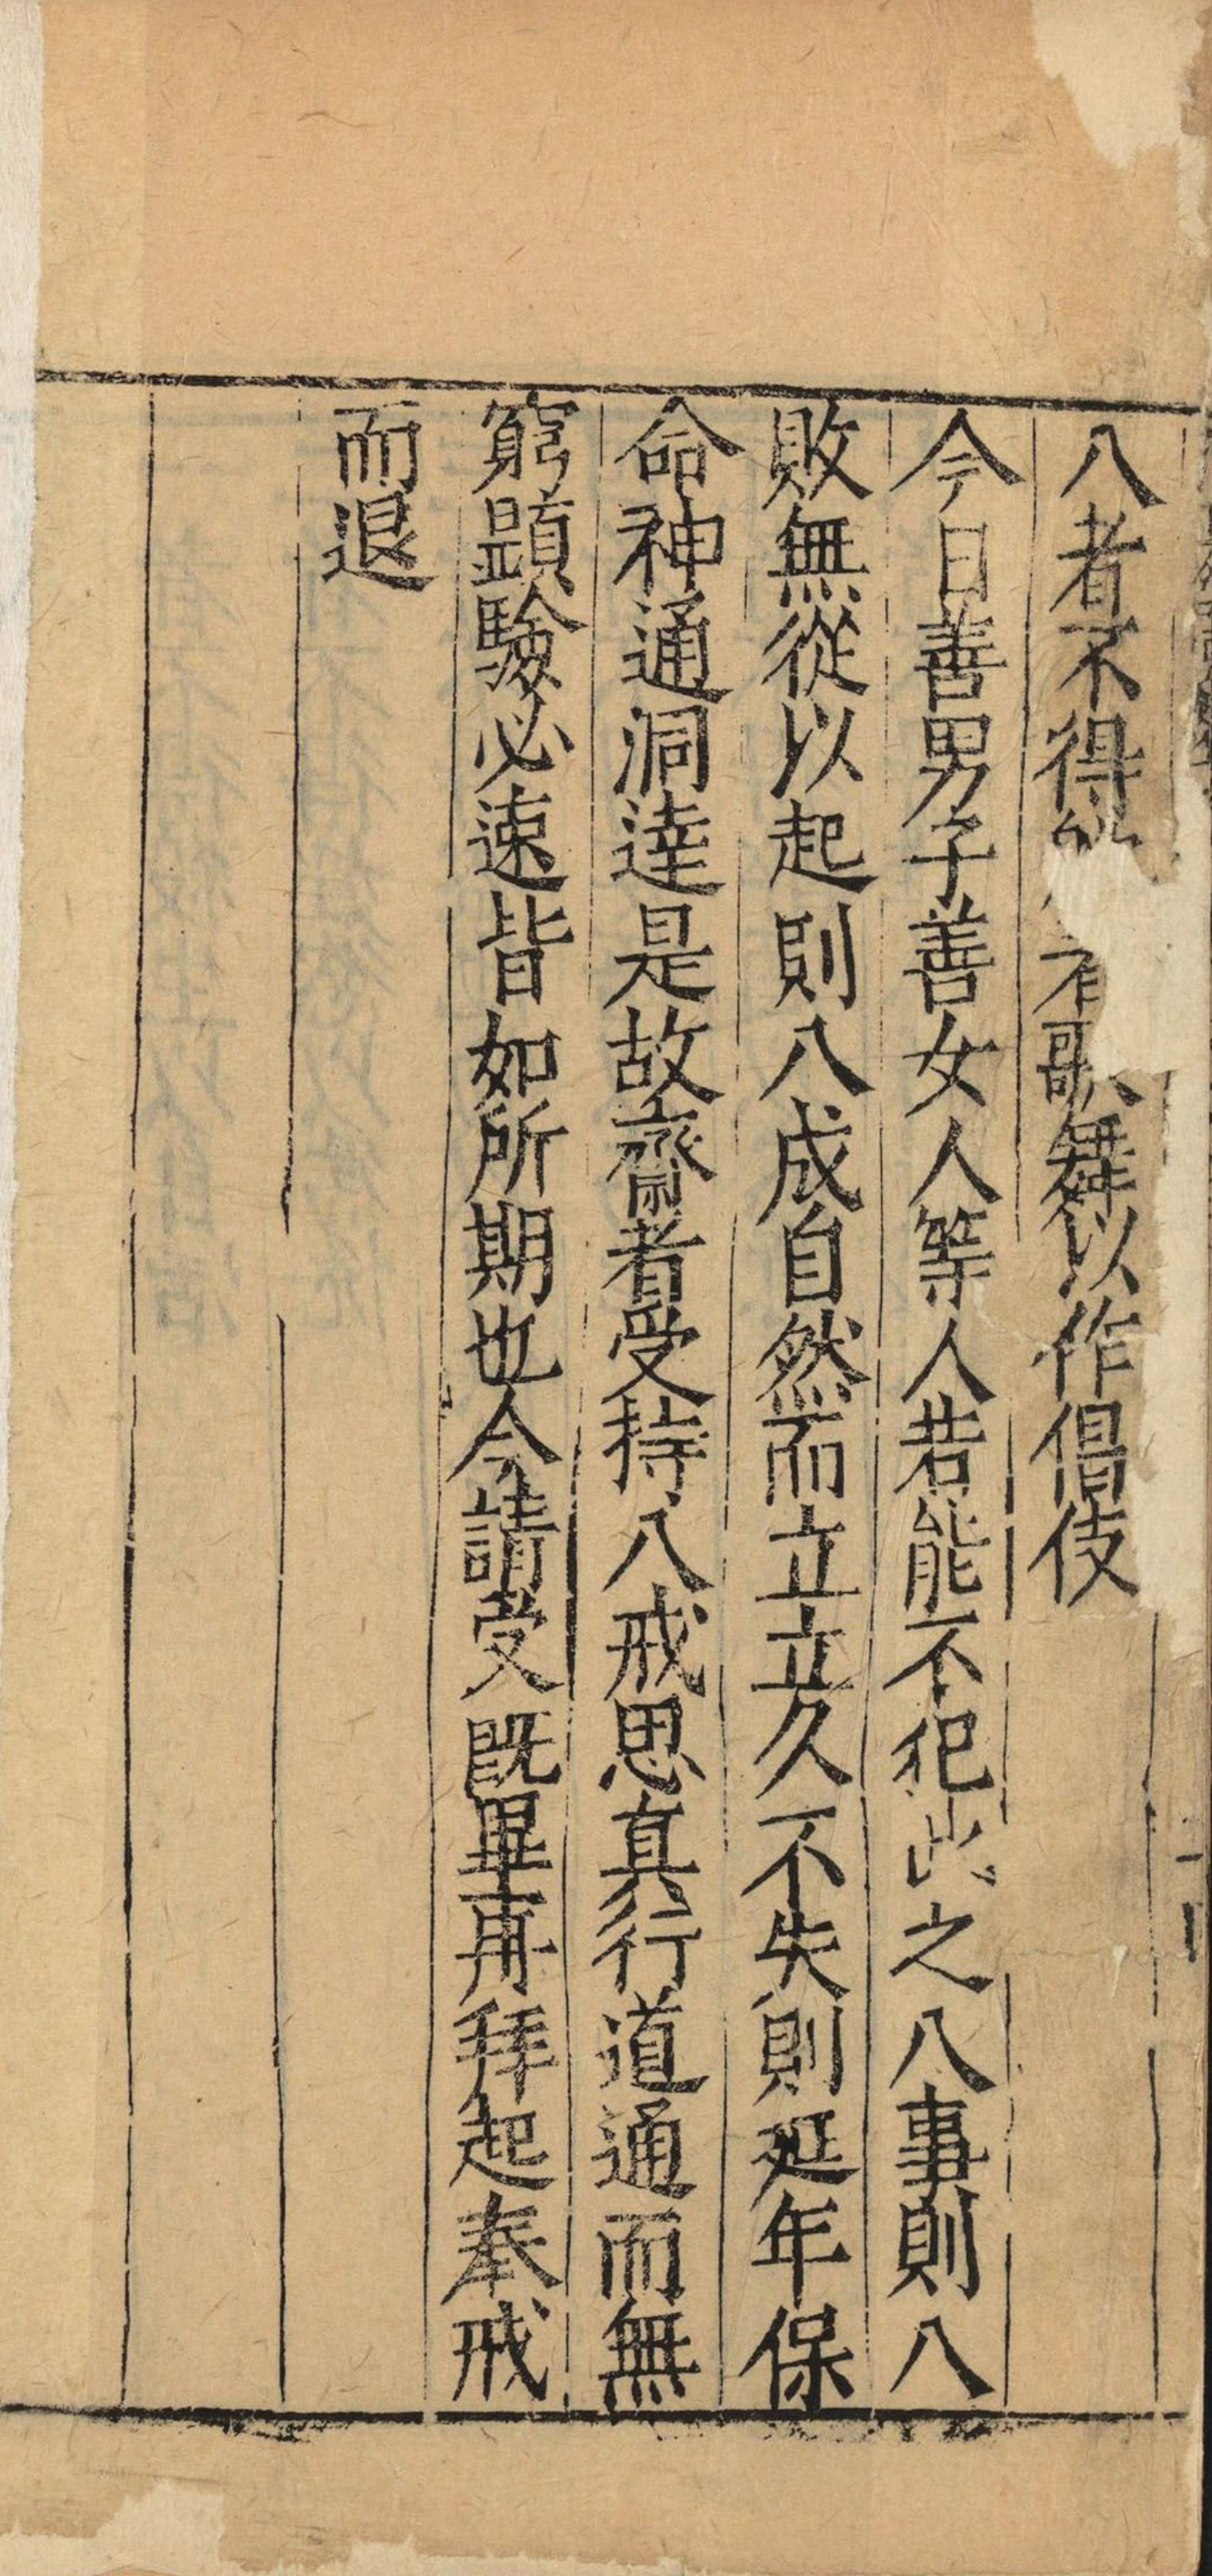 八者不得歌舞以作倡伎
今日善男子善女人等人若能不犯此之八事則八
敗無從以起則八成自然而立立久不失則延年保
命神通洞達是故齋者受持八戒思真行道通而無
窮顕驗必速皆如所期也今請受旣畢再拜起奉戒
而退